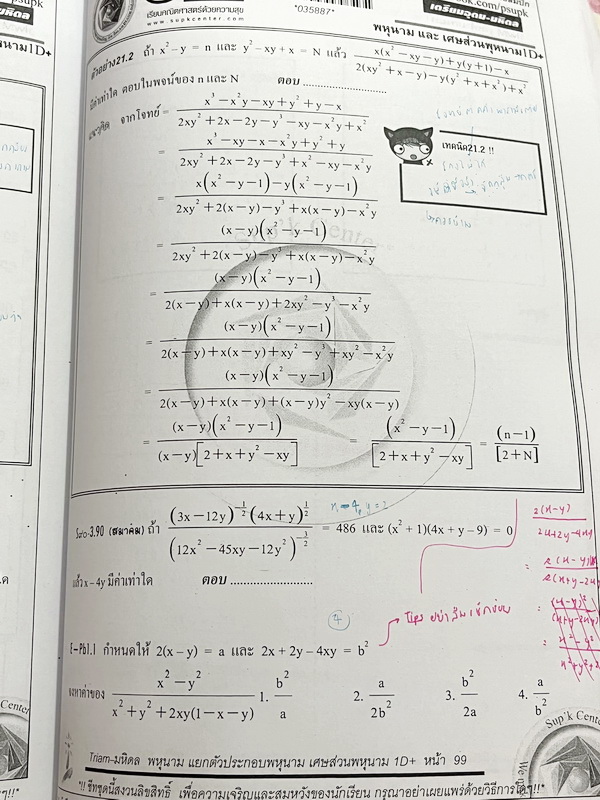 เรียนคณิตศาสตร์ด้วยความสุข
www.supkcenter.com
*035887*
ok.com/psupk
เตรียมอุดม-มหิดล
พหุนาม และ เศษส่วนพหุนาม1D+
ตัวอย่าง21.2 ถ้า x² − y = n และ y² − xy + x = N แล้ว (x(x² − xy − y) + y(y + 1) − x) / (2(xy² + x − y) − y(y² + x + x²) + x²)
มีค่าเท่าใด ตอบในพจน์ของ n และ N ตอบ
แนวคิด จากโจทย์ = (x³ − x²y − xy + y² + y − x) / (2xy² + 2x − 2y − y³ − xy − x²y + x²)
= (x³ − xy − x − x²y + y² + y) / (2xy² + 2x − 2y − y³ + x² − xy − x²y)
เทคนิค21.2 !!
= (x(x² − y − 1) − y(x² − y − 1)) / (2xy² + 2(x − y) − y³ + x(x − y) − x²y)
= (x − y)(x² − y − 1) / (2xy² + 2(x − y) − y³ + x(x − y) − x²y)
= (x − y)(x² − y − 1) / (2(x − y) + x(x − y) + 2xy² − y³ − x²y)
= (x − y)(x² − y − 1) / (2(x − y) + x(x − y) + xy² − y³ + xy² − x²y)
= (x − y)(x² − y − 1) / (2(x − y) + x(x − y) + (x − y)y² − xy(x − y))
= (x − y)(x² − y − 1) / (x − y)[2 + x + y² − xy] = (x² − y − 1) / [2 + x + y² − xy] = (n − 1) / [2 + N]
Sup'k Center
3.90 (สมาคม) ถ้า ((3x − 12y)^(−1/2) (4x + y)^(1/2)) / (12x² − 45xy − 12y²)^(−3/2) = 486 และ (x² + 1)(4x + y − 9) = 0
แล้ว x − 4y มีค่าเท่าใด ตอบ
E-Pb1.1 กำหนดให้ 2(x − y) = a และ 2x + 2y − 4xy = b²
จงหาค่าของ (x² − y²) / (x² + y² + 2xy(1 − x − y)) 1. b²/a 2. a/2b² 3. b²/2a 4. a/b²
Triam-มหิดล พหุนาม แยกตัวประกอบพหุนาม เศษส่วนพหุนาม 1D+ หน้า 99
"!! ชีทชุดนี้สงวนลิขสิทธิ์ เพื่อความเจริญและสมหวังของนักเรียน กรุณาอย่าเผยแพร่ด้วยวิธีการใดๆ!!"